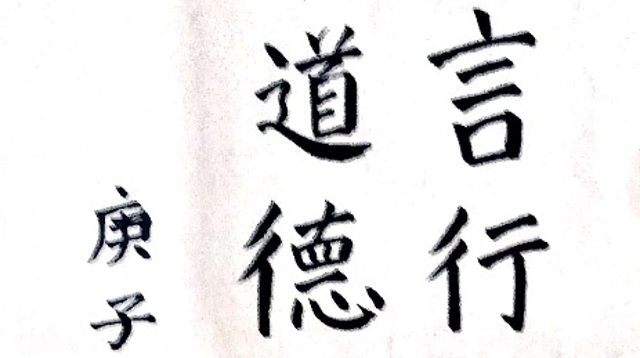 言行
道德
庚子